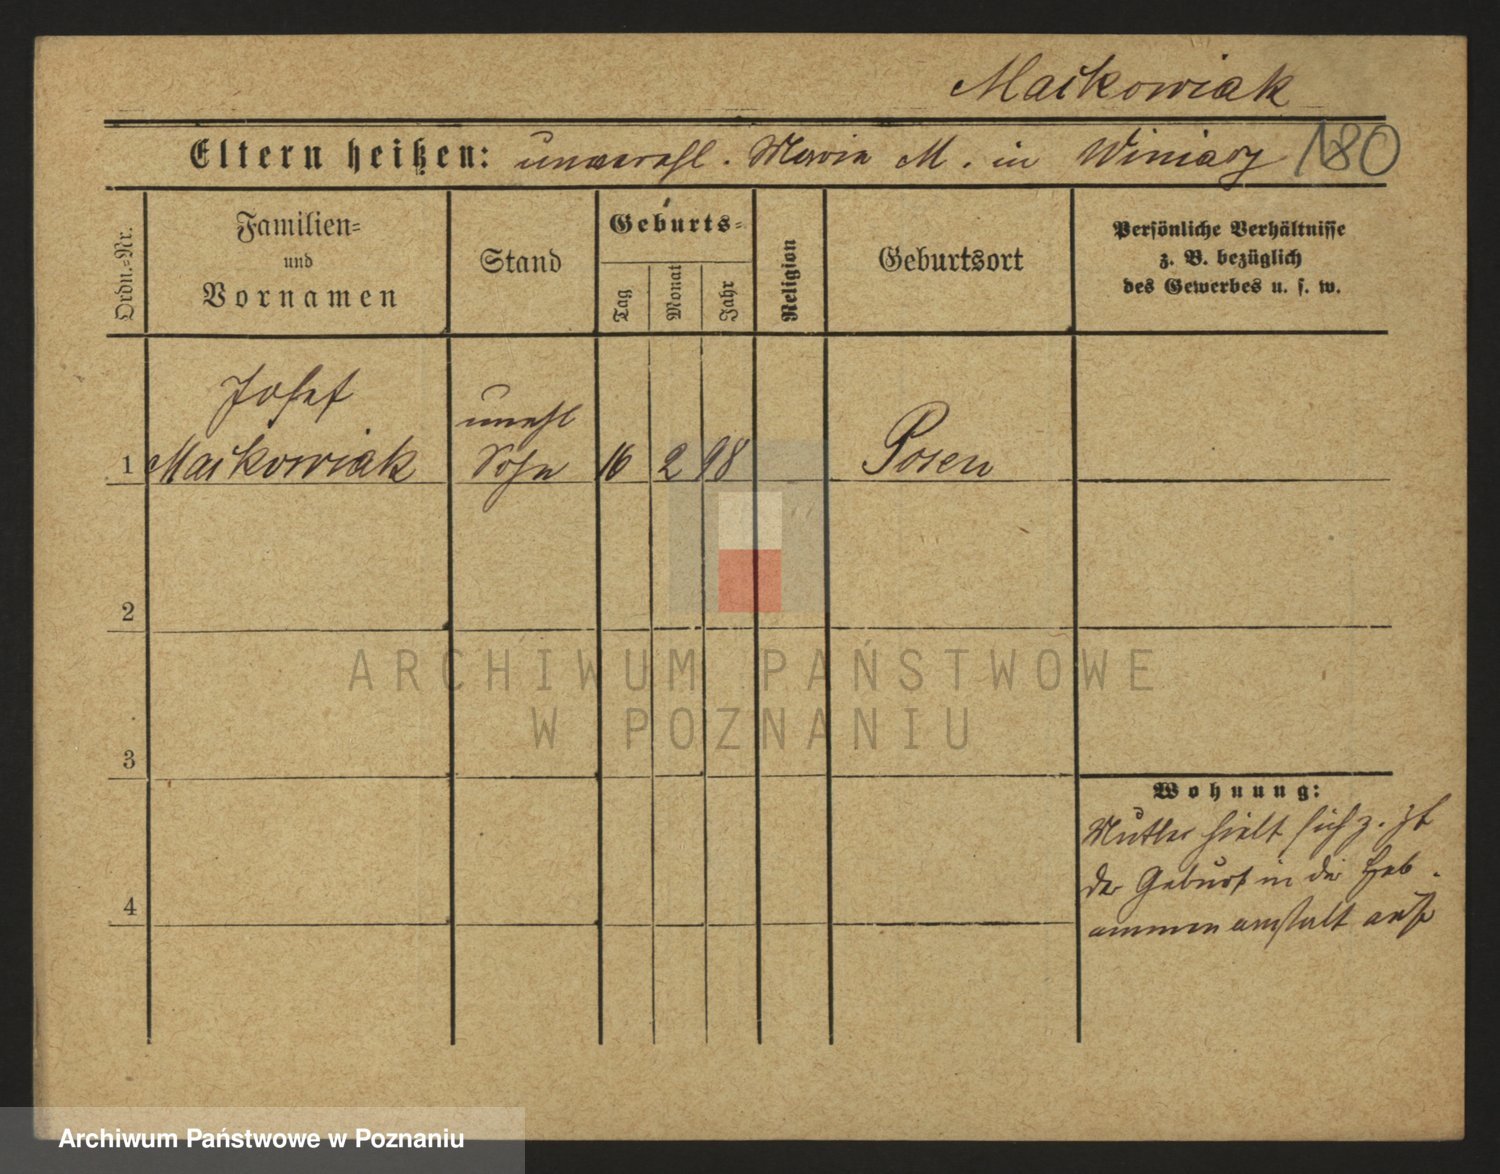 Maćkowiak
Eltern heißen: unverehl. Maria M. in Winiary 180
Ordn.-Nr.
Familien-
und
Vornamen
Stand
Geburts-
Tag
Monat
Jahr
Religion
Geburtsort
Persönliche Verhältnisse
z. B. bezüglich
des Gewerbes u. s. w.
Josef
unehl
1 Maćkowiak Sohn 16 2 98 Posen
2
ARCHIWUM PAŃSTWOWE
W POZNANIU
3
Wohnung:
Mutter hielt sich z. Zt
der Geburt in die Heb-
4
ammenanstalt auf
Archiwum Państwowe w Poznaniu